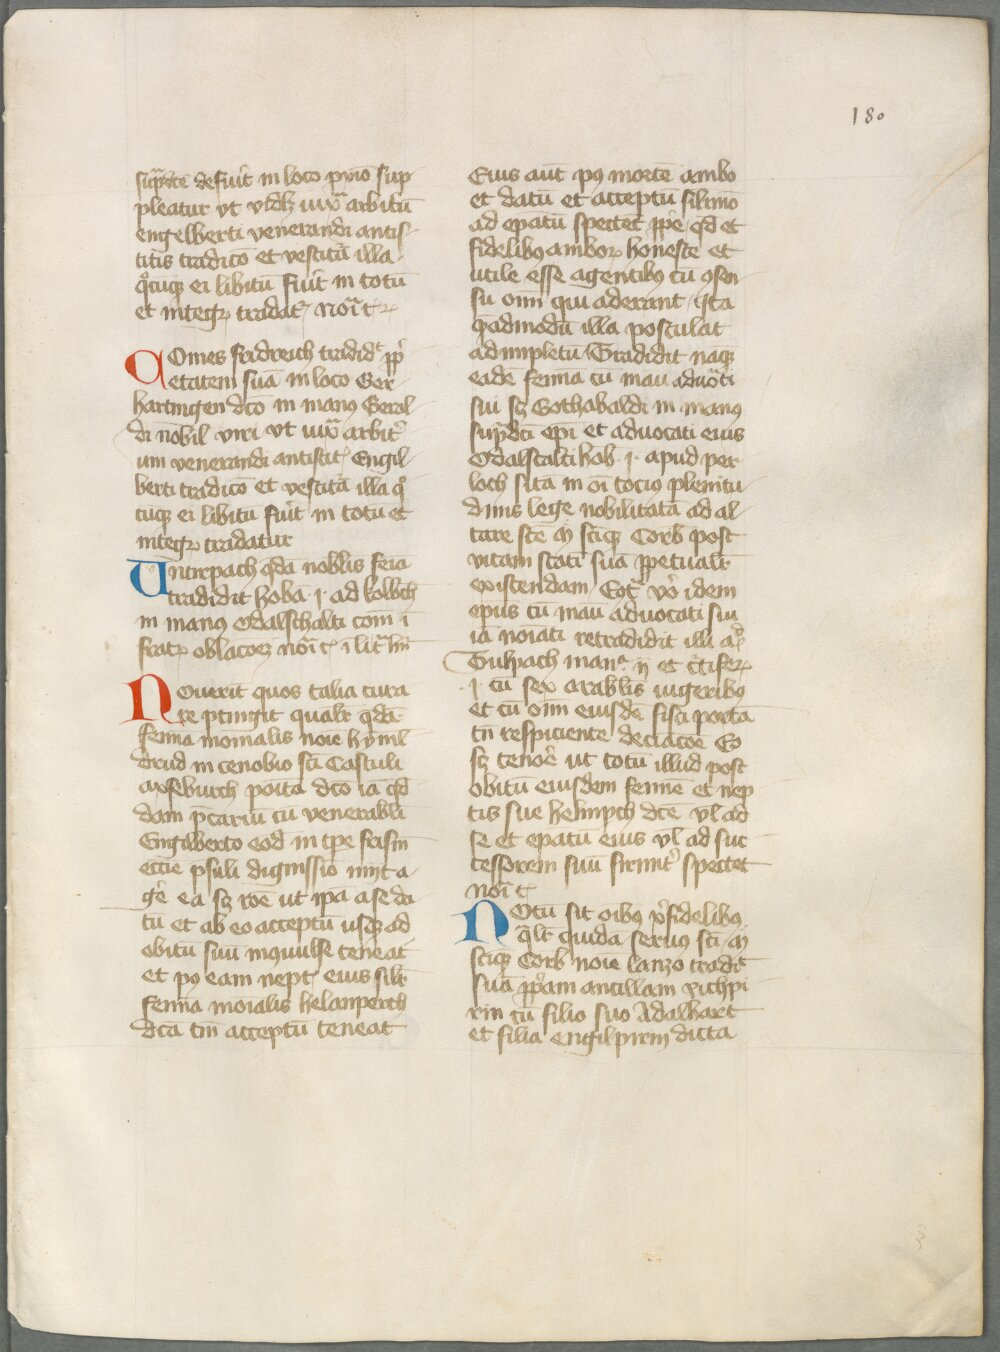 180
sup̃dc̃e defuīt in loco p̃xio sup
pleatur vt vidlʒ iuxᵃ arbitū
engelberti venerandi antis
titis tradico̅ et vestitā illā
qͦcūqʒ ei libitū fuīt in totū
et integrꝫ tradatᷣ noĩa tꝫ
Comes fridreich tradidᵗ ꝓpͥ
etatem suā in loco Ger
hartingen dc̄o in manꝰ Gerol
di nobil viri vt iuxᵃ arbitͥ
um venerandi antistitꝭ Engil
berti tradico̅ et vestitā illā qͦ
cūqʒ ei libitū fuīt in totū et
integrꝫ tradatur
Untrpach qdā nobl̄is feīa
tradidit hobā ·j· ad kolbch
in manꝰ Odalschalti com̄ i
fratrꝫ oblacoeꝫ noĩa tꝫ
Nouerit quos talia cura
re ptingit qual̄r qdā
femīa moīalis noīe hymil
drud in cenobio sc̄i Castuli
mosebụrch poīta dc̄o iā qd
dam p̄cariū cū venerabli
Engilberto eod̄ in tp̄e frisīn
ecc̄ie p̄suli dignissīo inijt a
ge᷒ ea sʒ roē ut ip̄a a se da
tū et ab eo acceptū usqʒ ad
obitū suū inuulse teneat
et pꝰ eam neptꝭ eius sil̄r
femīa moīalis helanperch
dc̄a tm̄ acceptū teneat
Eius aut̄ pꝰ morte̅ ambo
et datū et acceptū sil̄imō
ad ep̄atū spectet ꝓpͤ qd et
fidelibꝰ amborꝫ honeste et
utile esse agentibꝰ cū ꝯsen
su om̄i qui aderant ista
q̄admodū illa postulat
adimpletū Tradidit naqʒ
eadē femīa cū manu aduoᶜti
sui sʒ Gothabaldi in manꝰ
sup̄dc̄i ep̄i et aduocati eius
Odalscalci hob ·j· apud per
loch sitā in oī tocio plenitu
dinis lege nobilitatā ad al
tare sc̄e M̄ sc̄iqʒ Corb post
vitam statī suā ꝑpetual̄r
existendam Eqᵃ v̊o idem
ep̄us cū manu aduocati sui
iā noīati retradidit illi aᵈ
Gulpach manᵃ ·ij· et
·j· cū sex arablīs iugeribꝰ
et cū om̄i eiusdē fisci portā
tn̄ respiciente deciacōe Eo
sʒ tenoͬe ut totū illud post
obitū eiusdem femīe et nep
tis sue helinpch dc̄e vl̄ ad
se et ep̄atū eius vl̄ ad suc
cessorem suū firmitͬ spectet
noĩa tꝫ
Notū sit oībꝰ xp̄i fidelibꝰ
q̄l̄r quidā seruꝰ sc̄e M̄
sc̄iqʒ Corb noīe lanzo tradiᵗ
suā ꝓpͥam ancillam richpi
rin cū filio suo Adalhart
et filia engilpirin dicta